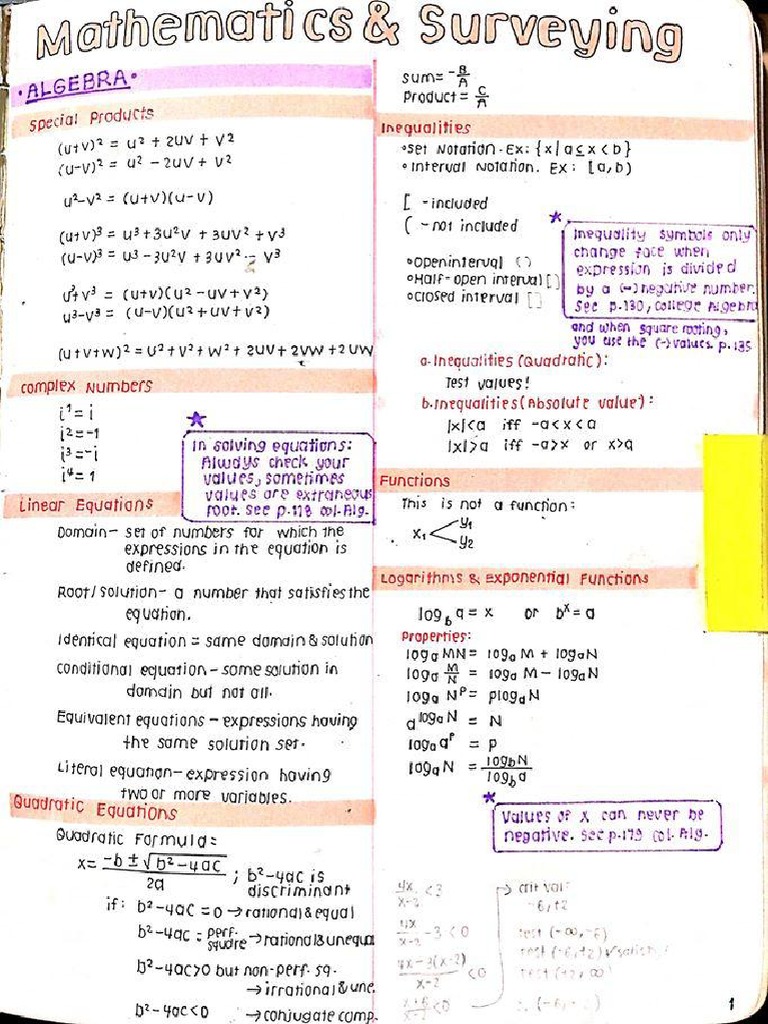 Mathematics & Surveying
• ALGEBRA •
Special Products
(u+v)² = u² + 2uv + v²
(u-v)² = u² - 2uv + v²
u²-v² = (u+v)(u-v)
(u+v)³ = u³+3u²v + 3uv² + v³
(u-v)³ = u³ - 3u²v + 3uv² - v³
u³+v³ = (u+v)(u² - uv + v²)
u³-v³ = (u-v)(u² + uv + v²)
(u+v+w)² = u² + v² + w² + 2uv + 2vw + 2uw
Complex Numbers
i¹ = i
i² = -1
i³ = -i
i⁴ = 1
In solving equations:
Always check your
values, sometimes
values are extraneous
root. See p.118 col. Alg.
Linear Equations
Domain - set of numbers for which the
expressions in the equation is
defined.
Root/Solution - a number that satisfies the
equation.
Identical equation = same domain & solution
Conditional equation - some solution in
domain but not all.
Equivalent equations - expressions having
the same solution set.
Literal equation - expression having
two or more variables.
Quadratic Equations
Quadratic Formula:
x = -b ± √b²-4ac / 2a ; b²-4ac is
discriminant
if: b²-4ac = 0 → rational & equal
b²-4ac = perf. square → rational & unequa
b²-4ac>0 but non-perf. sq.
→ irrational & une.
b²-4ac<0 → conjugate comp.
sum = -B/A
Product = C/A
Inequalities
• Set Notation. Ex: {x | a ≤ x < b}
• Interval Notation. Ex: [a, b)
[ - included
( - not included
• Open interval ()
• Half-open interval [)
• Closed interval []
Inequality symbols only
change face when
expression is divided
by a (-) negative number.
See p.130, College Algebra
and when square rooting,
you use the (-) values. p.135
a. Inequalities (Quadratic):
Test values!
b. Inequalities (Absolute value):
|x|<a iff -a<x<a
|x|>a iff -a>x or x>a
Functions
This is not a function:
x₁ < y₁
y₂
Logarithms & Exponential Functions
log_b a = x or bˣ = a
Properties:
logₐ MN = logₐ M + logₐ N
logₐ M/N = logₐ M - logₐ N
logₐ Nᵖ = p logₐ N
a^(logₐ N) = N
logₐ aᵖ = p
logₐ N = log_b N / log_b a
Values of x can never be
negative. See p.179 col. Alg.
4x/x-2 < 3
4x/x-2 - 3 < 0
4x-3(x-2)/x-2 < 0
x+6/x-2 < 0
crit val:
-6, +2
test (-∞, -6)
test (-6, +2) ✓ satisfy
test (+2, ∞)
1